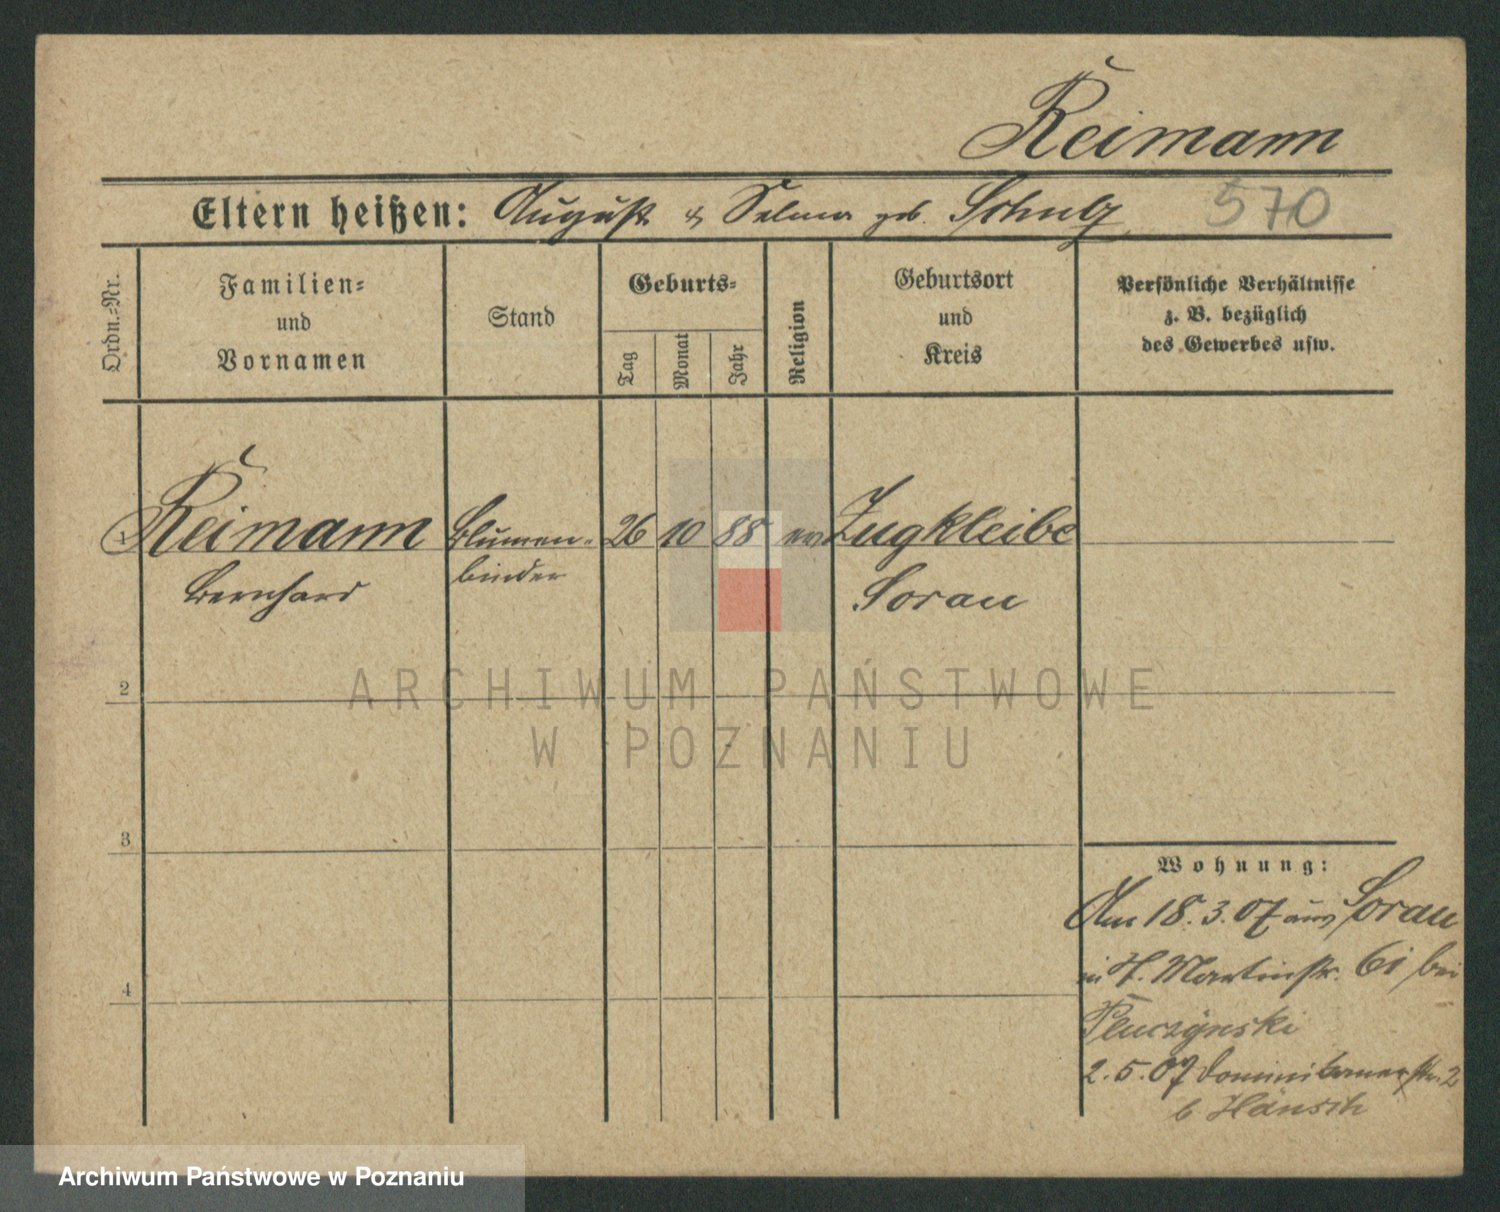 Reimann
Eltern heißen: August & Selma geb. Schulz 570
Ordn.-Nr.
Familien-
und
Vornamen
Stand
Geburts-
Tag
Monat
Jahr
Religion
Geburtsort
und
Kreis
Persönliche Verhältnisse
z. B. bezüglich
des Gewerbes usw.
1 Reimann Blumen- 26 10 88 ev Zugkleibe
Bernhard binder Sorau
2
ARCHIWUM PAŃSTWOWE
W POZNANIU
3
4
Wohnung:
Am 18.3.07 aus Sorau
in St. Martinstr. 61 bei
Pluczynski
2.5.07 Dominikanerstr. 2
b Hänsch
Archiwum Państwowe w Poznaniu